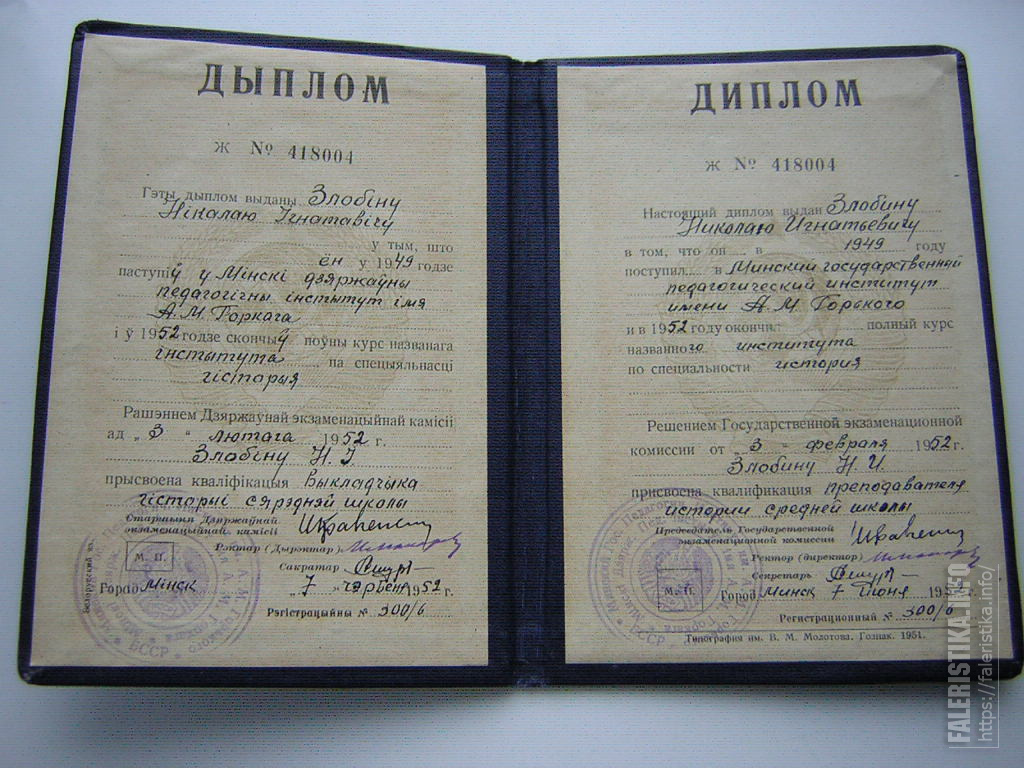 ДЫПЛОМ
Ж № 418004
Гэты дыплом выданы Злобіну
Нікалаю Ігнатавічу
у тым, што
ён у 1949 годзе
паступіў у Мінскі дзяржаўны
педагогічны інстытут імя
А.М. Горкага
і ў 1952 годзе скончыў поўны курс названага
інстытута на спецыяльнасці
гісторыя
Рашэннем Дзяржаўнай экзаменацыйнай камісіі
ад „3“ лютага 1952 г.
Злобіну Н. І.
прысвоена кваліфікацыя Выкладчыка
гісторыі сярэдняй школы
Старшыня Дзяржаўнай
экзаменацыйнай камісіі
Рэктар (Дырэктар)
М. П.
Сакратар
Горад Мінск „7“ чэрвеня 1952 г.
Рэгістрацыйны № 300/б
Беларускай
БССР
ДИПЛОМ
Ж № 418004
Настоящий диплом выдан Злобину
Николаю Игнатьевичу
в том, что он в 1949 году
поступил в Минский государственный
педагогический институт
имени А.М. Горького
и в 1952 году окончил полный курс
названного института
по специальности история
Решением Государственной экзаменационной
комиссии от „3“ февраля 1952 г.
Злобину Н. И.
присвоена квалификация преподавателя
истории средней школы
Председатель Государственной
экзаменационной комиссии
Ректор (директор)
Секретарь
М. П.
Город Минск 7 июня
Регистрационный № 300/б
БССР
Типография им. В. М. Молотова. Гознак. 1951.
FALERISTIKA.INFO
https://faleristika.info/